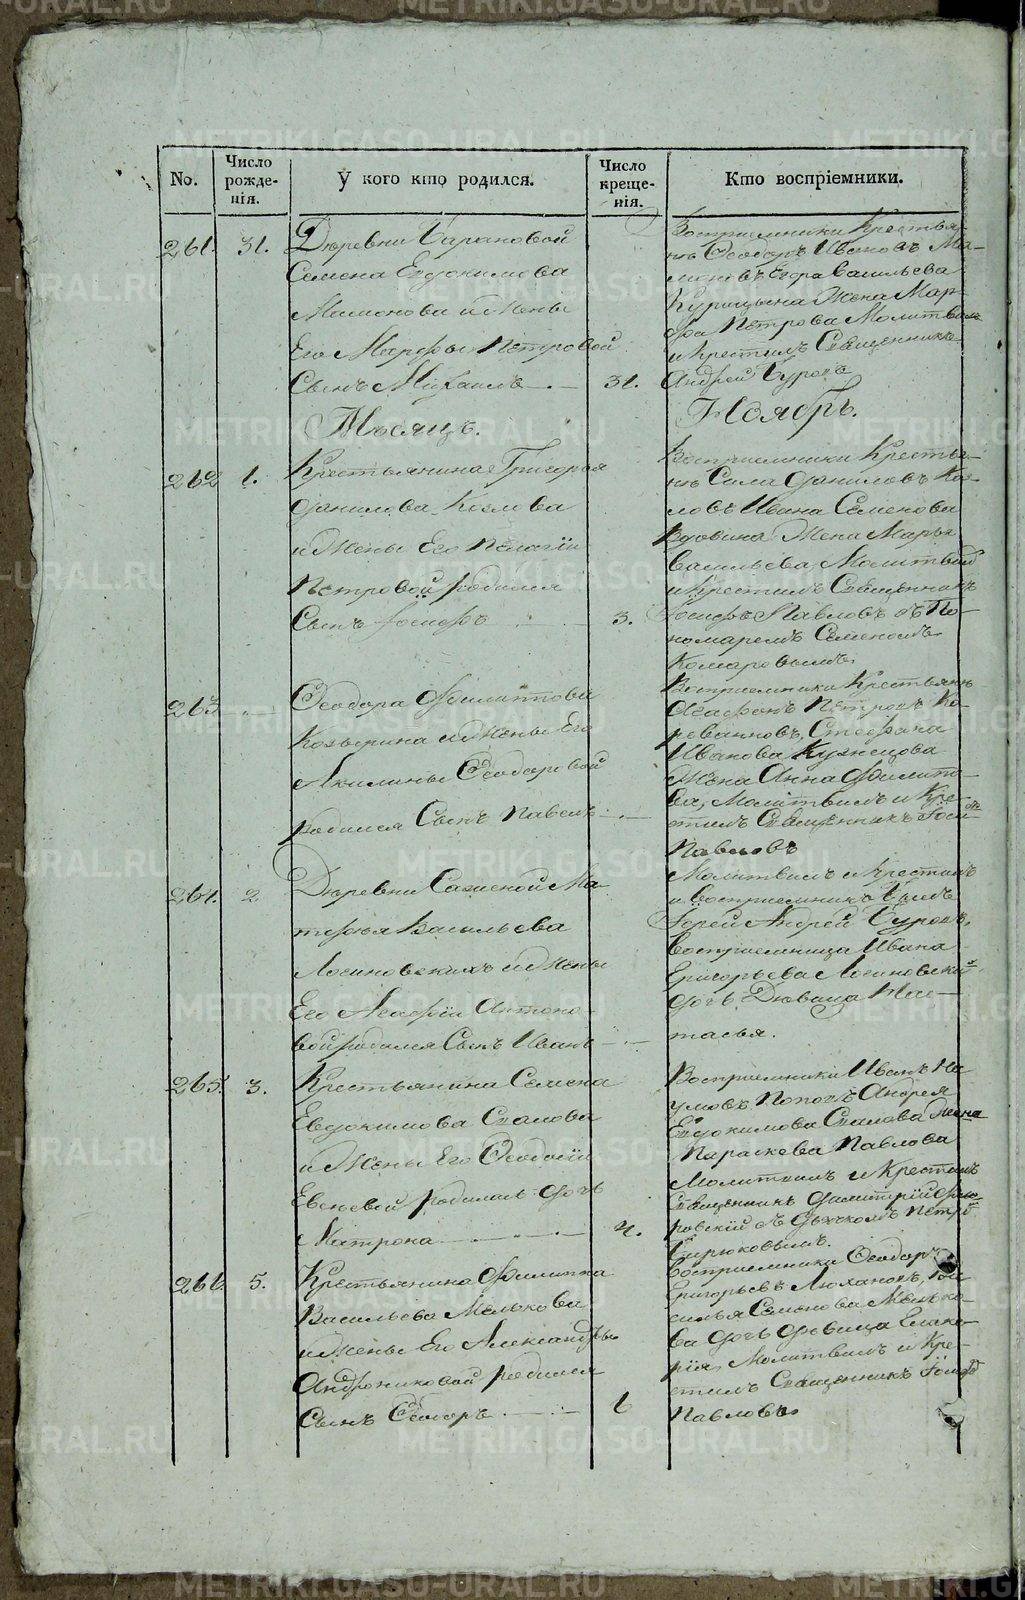 No.
Число рожденія.
У кого кто родился.
Число крещенія.
Кто воспріемники.
261.
31.
Деревни Барановой
Семена Евдокимова
Мамонова и Жены
Его Марфы Петровой
Сынъ Михаилъ
31.
Восприемники Крестья-
нъ Ѳеодоръ Ивановъ Ма-
моновъ Егора Васильева
Курицына Жена Мар-
фа Петрова Молитвилъ
и Крестилъ Священникъ
Андрей
Мѣсяцъ.
Ноябрь.
262
1.
Крестьянина Григорья
Данилова Козлова
и Жены Его Пелагіи
Петровой родился
Сынъ Іосифъ
3.
Восприемники Крестья-
нъ Сила Даниловъ Коз-
ловъ Ивана Семенова
Вдовина Жена Марья
Васильева, Молитвилъ
и Крестилъ Священникъ
Іосифъ Павловъ съ По-
номаремъ Семеномъ
Комаровымъ.
263
Ѳеодора Филиппова
Козырина и Жены Его
Акилины Ѳеодоровой
родился Сынъ Павелъ
Восприемники Крестьянъ
Агафонъ Петровъ Ко-
Стефана
Иванова Кузнецова
Жена Анна Филипо-
ва, Молитвилъ и Кре-
стилъ Священникъ Іоси
Павловъ
264.
2
Деревни Ма
Васильева
Лосиновскихъ и Жены
Его Агафіи Антоно-
вой родился Сынъ Иванъ
Молитвилъ и Крестилъ
и восприемникъ былъ
Іерей Андрей
Восприемница Ивана
Григорьева Лосиновской
дочь Дѣвица Нас-
тасья.
265.
3.
Крестьянина Семена
Евдокимова
и Жены Его Ѳеодосіи
Евсѣевой родилась дочь
Матрона
4.
Восприемники Иванъ На-
умовъ Поповъ Андрея
Евдокимова Жена
Параскева Павлова
Молитвилъ и Крестилъ
Священникъ Димитрій Фло-
ровскій съ Дьячкомъ Петро
Бирюковымъ.
266.
5.
Крестьянина Филиппа
Васильева Мелькова
и Жены Его Александры
Андрониковой родился
Сынъ Ѳеодоръ
6
Восприемники Ѳеодоръ
Григорьевъ Ва-
силья Семенова Мелько-
ва дочь дѣвица Глике-
рія, Молитвилъ и Кре-
стилъ Священникъ Іосифъ
Павловъ
METRIKI.GASO-URAL.RU